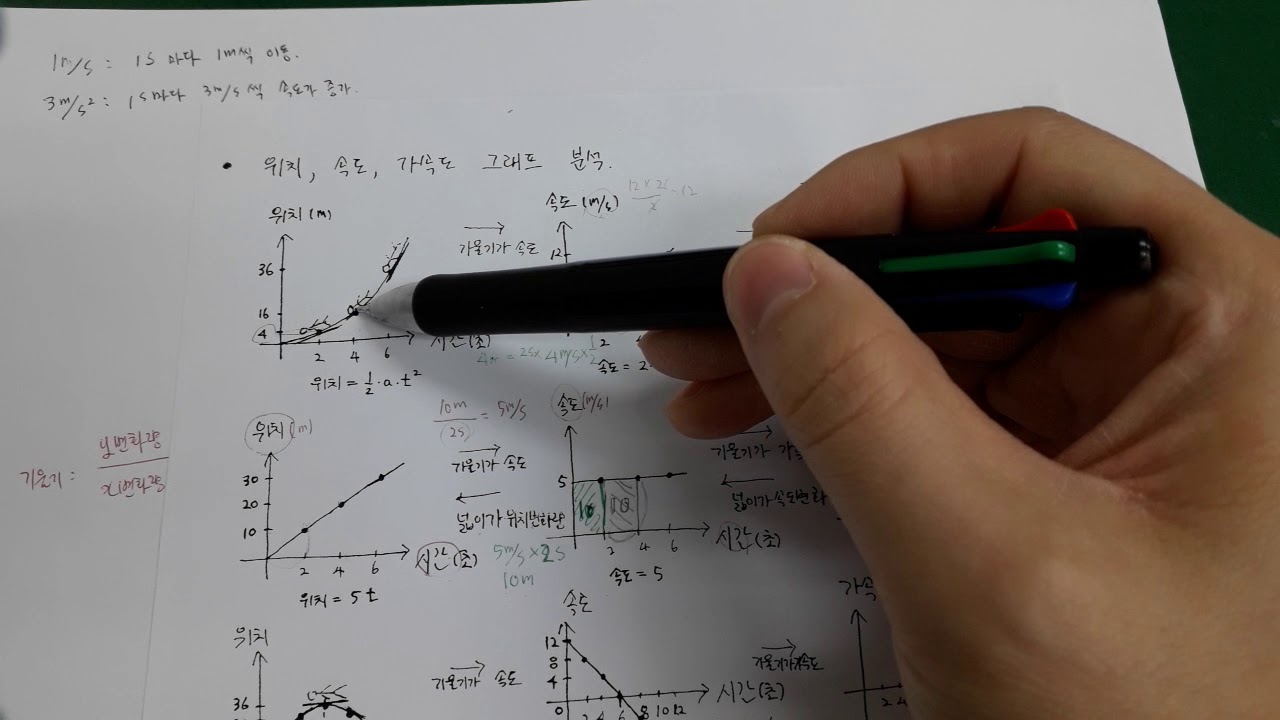 1m/s : 1s 마다 1m씩 이동.
3m/s² : 1s마다 3m/s 씩 속도가 증가.
• 위치, 속도, 가속도 그래프 분석.
위치(m)
36
16
4
2 4 6
시간(초)
위치 = ½·a·t²
기울기가 속도
속도(m/s)
12
4m = 2s × 4m/s × ½
2
속도 = 2
기울기 : y변화량 / x변화량
위치(m)
30
20
10
2 4 6
시간(초)
위치 = 5t
10m / 2s = 5m/s
기울기가 속도
넓이가 위치변화량
5m/s × 2s
10m
속도(m/s)
5
10 10
2 4 6
시간(초)
속도 = 5
기울기가 가속
넓이가 속도변화
위치
36
기울기가 속도
속도
12
8
4
0
2 4 6 8 10 12
시간(초)
기울기가 가속도
가속
2 4